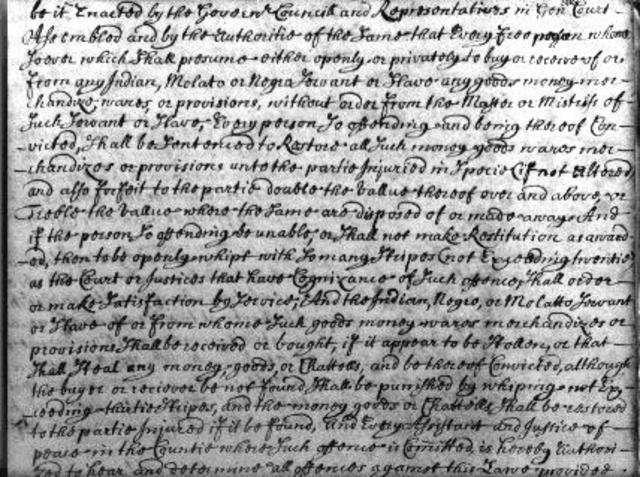 be it Enacted by the Governr Councill and Representatives in Genll Court
Assembled and by the Authoritie of the Same that Every free person whome
soever which shall presume either openly or privately to buy or receive of or
from any Indian, Molato or Negro servant or slave any goods money mer-
-chandize wares, or provisions, without order from the Master or Mistriss of
such servant or slave, Every person so offending and being thereof Con-
-victed, shall be sentenced to Restore all such money goods wares mer-
-chandizes or provisions unto the partie Injuried in specie (if not altered
and also forfeit to the partie double the vallue thereof over and above, or
Treble the vallue where the same are disposed of or made away. And
if the person so offending be unable, or shall not make Restitution as award-
-ed, then to be openly whipt with so many stripes (not Exceeding twentie
as the Court or Justices that have Cognizance of such offence, shall order
or make satisfaction by service, And the Indian, Negro, or Molatto servant
or slave of or from whome such goods money wares merchandizes or
provisions shall be received or bought, if it appear to be stollen, or that
shall steal any money, goods, or Chattells, and be thereof Convicted, although
the buyer or reciever be not found, shall be punished by whiping not Ex-
-ceeding thirtie stripes, and the money goods or Chattells shall be restored
to the partie Injured if it be found, And Every Assistant and Justice of
peace in the Countie where such offence is Comitted, is hereby Authori-
-zed to hear and determine all offences against this Lawe provided